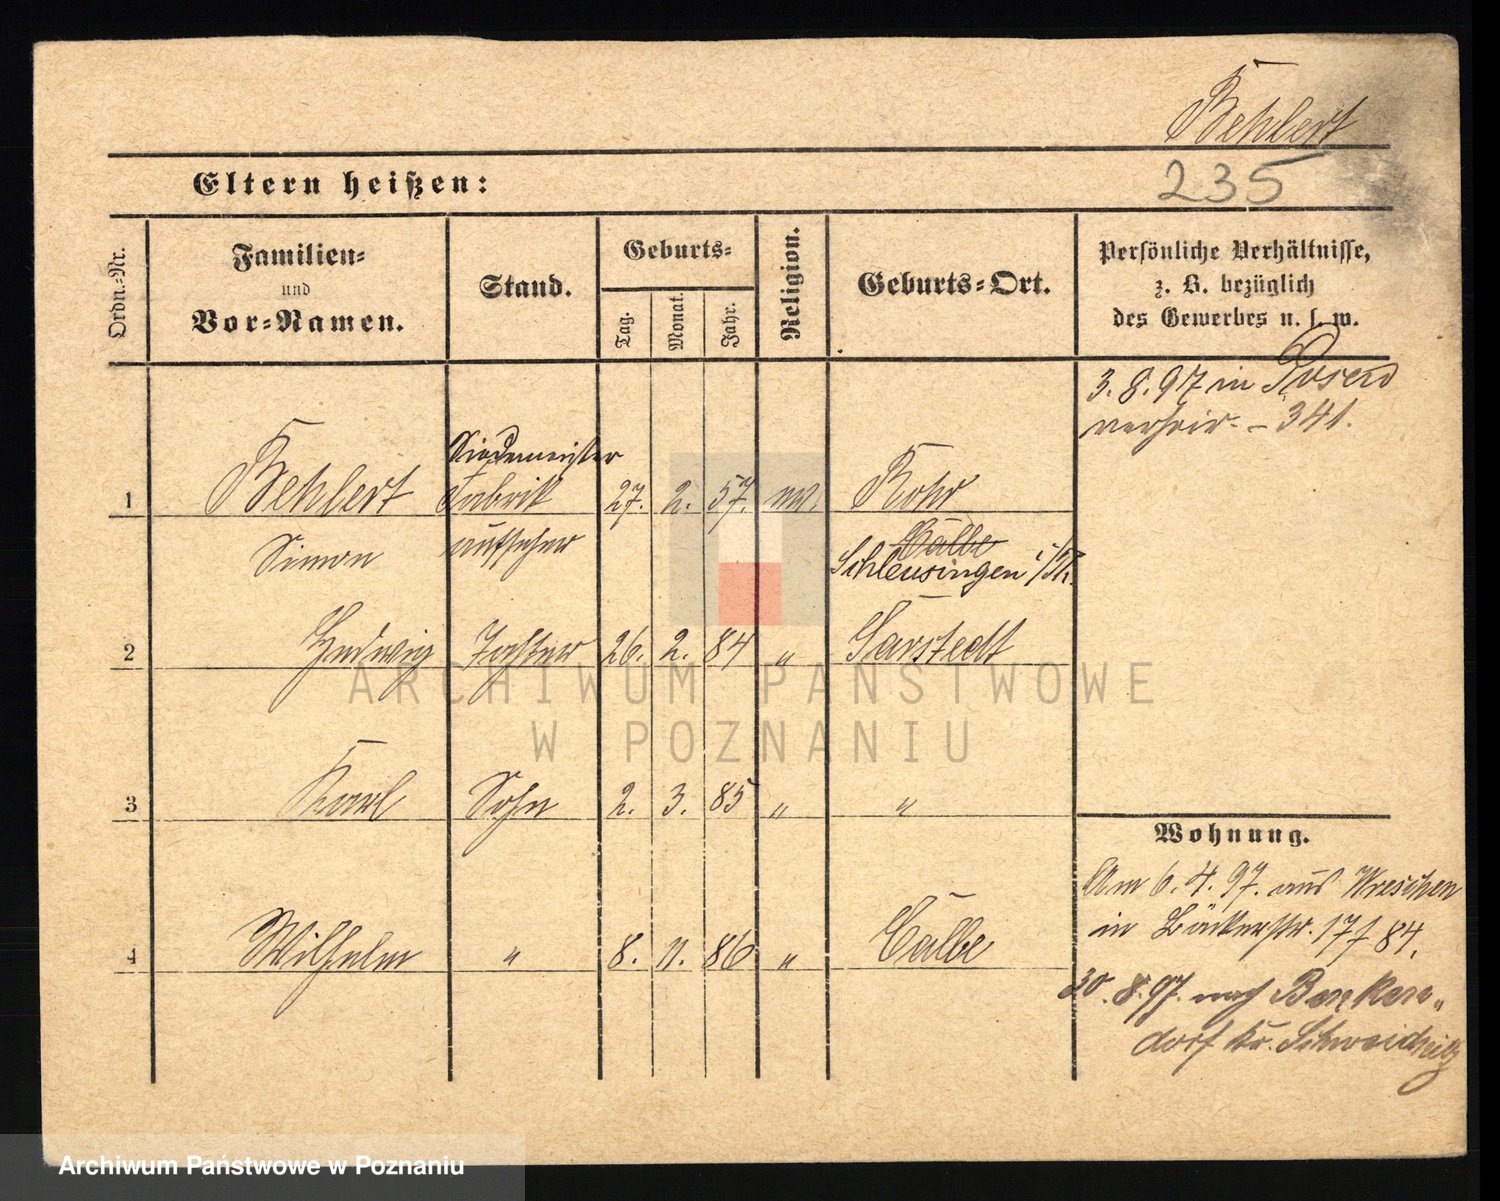 Behlert
235
Eltern heißen:
Ordn.-Nr.
Familien-
und
Vor-Namen.
Stand.
Geburts-
Tag.
Monat.
Jahr.
Religion.
Geburts-Ort.
Persönliche Verhältnisse,
z. B. bezüglich
des Gewerbes u. s. w.
3. 8. 97 in Posen
verheir. - 341.
Siedemeister
1 Behlert Fabrik 27. 2. 57. ev. Rohr
Simon aufseher Calbe
Schleusingen i/Th.
2 Hedwig Tochter 26. 2. 84 " Sarstedt
3 Karl Sohn 2. 3. 85 " "
4 Wilhelm " 8. 11. 86 " Calbe
Wohnung.
Am 6. 4. 97. aus Wreschen
in Bäckerstr. 17 / 84.
30. 8. 97. nach
dorf Kr. Schweidnitz
ARCHIWUM PAŃSTWOWE
W POZNANIU
Archiwum Państwowe w Poznaniu